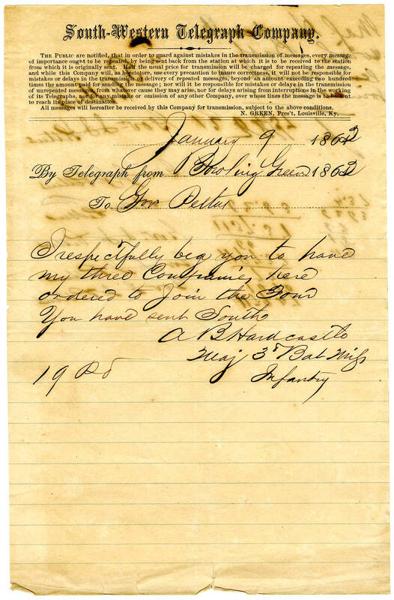 South-Western Telegraph Company.
The Public are notified, that in order to guard against mistakes in the transmission of messages, every message
of importance ought to be repeated, by being sent back from the station at which it is to be received to the station
from which it is originally sent. Half the usual price for transmission will be charged for repeating the message,
and while this Company will, as heretofore, use every precaution to insure correctness, it will not be responsible for
mistakes or delays in the transmission or delivery of repeated messages, beyond an amount exceeding two hundred
times the amount paid for sending the message; nor will it be responsible for mistakes or delays in the transmission
of unrepeated messages from whatever cause they may arise, nor for delays arising from interruptions in the working
of its Telegraphs, nor for any mistake or omission of any other Company, over whose lines the message is to be sent
to reach its place of destination.
All messages will hereafter be received by this Company for transmission, subject to the above conditions.
N. GREEN, Pres't, Louisville, Ky.
January 9 1862
By Telegraph from Bowling Green 1862
To Gov Pettus
I respectfully beg you to have
my three Companies here
ordered to Join the Four
You have sent South
A B Hardcastle
Maj 3d Bat Miss
Infantry
19 Pd